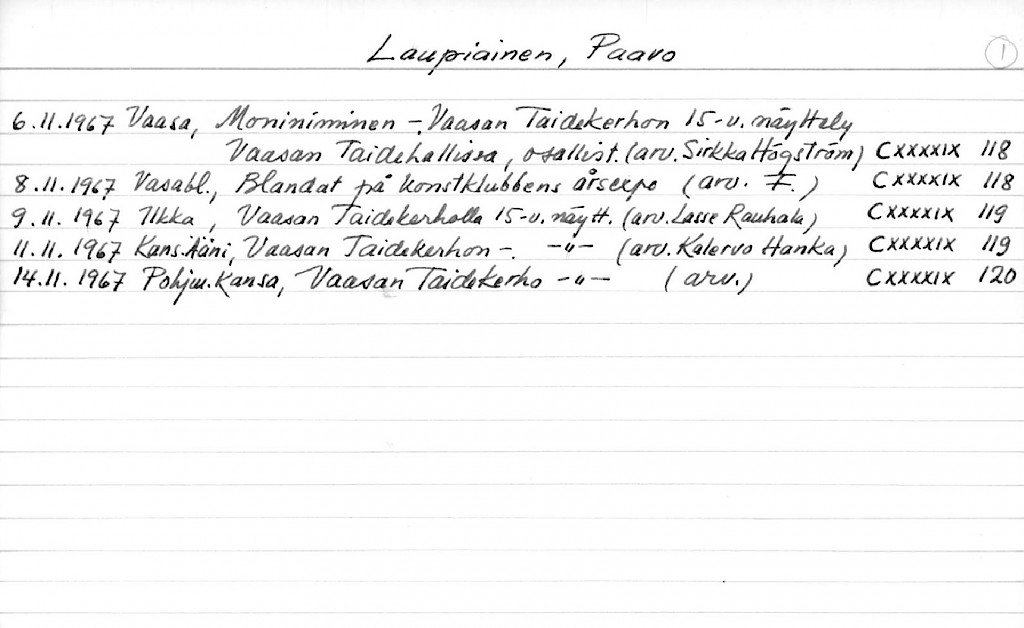 Laupiainen, Paavo 1
6.11.1967 Vaasa, Moniniminen - Vaasan Taidekerhon 15-v. näyttely
Vaasan Taidehallissa, osallist. (arv. Sirkka Högström) CXXXXIX 118
8.11.1967 Vasabl., Blandat på konstklubbens årsexpo (arv. F.) CXXXXIX 118
9.11.1967 Ilkka, Vaasan Taidekerholla 15-v. näytt. (arv. Lasse Rauhala) CXXXXIX 119
11.11.1967 Kans.Ääni, Vaasan Taidekerhon -. -"- (arv. Kalervo Hanka) CXXXXIX 119
14.11.1967 Pohjan.Kansa, Vaasan Taidekerho -"- (arv.) CXXXXIX 120